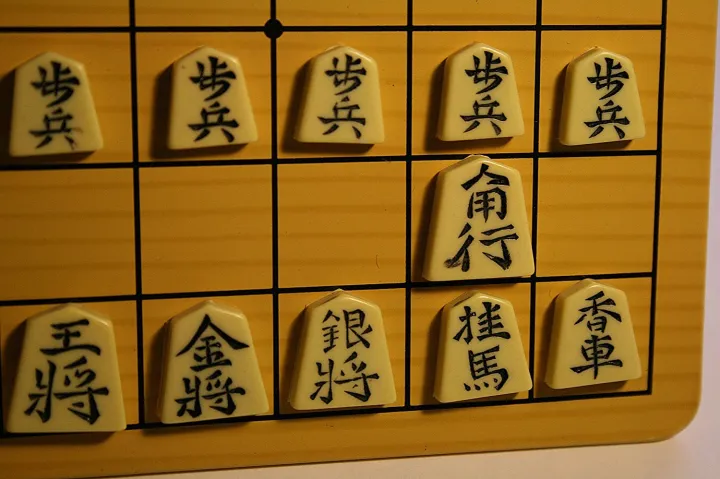 歩兵
歩兵
歩兵
歩兵
歩兵
角行
王將
金將
銀將
桂馬
香車